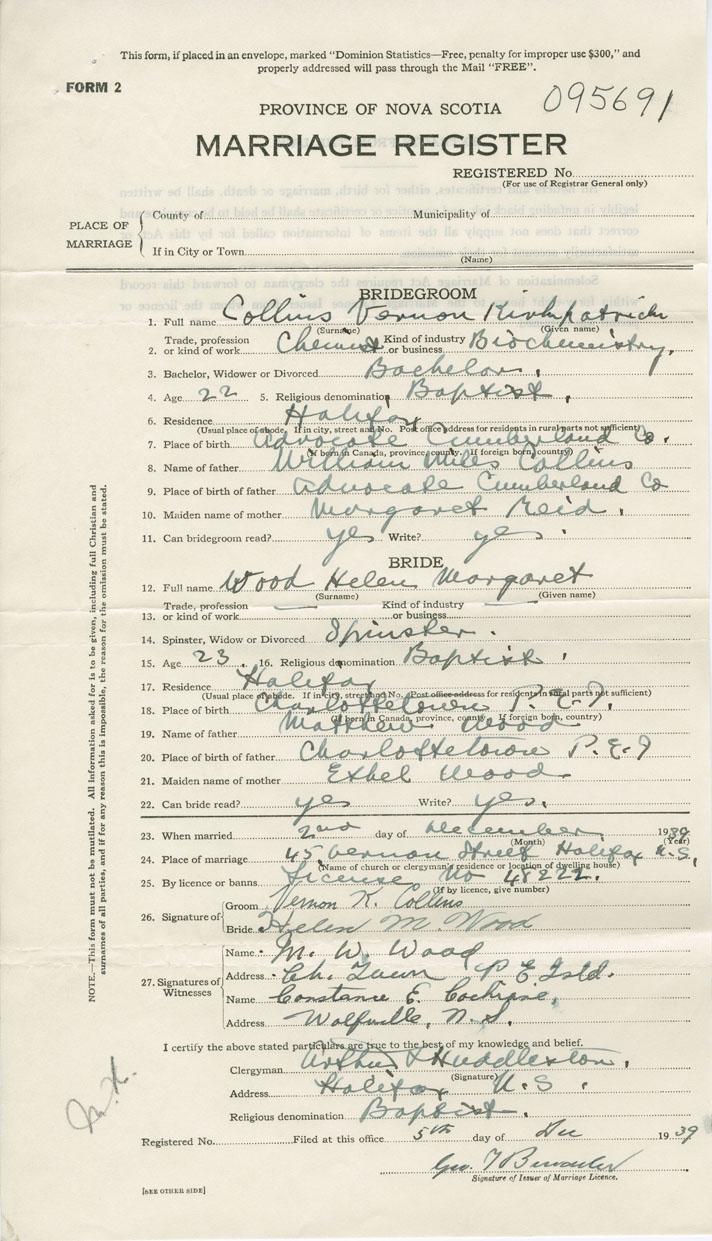 This form, if placed in an envelope, marked "Dominion Statistics—Free, penalty for improper use $300," and
properly addressed will pass through the Mail "FREE".
FORM 2
095691
PROVINCE OF NOVA SCOTIA
MARRIAGE REGISTER
REGISTERED No.
(For use of Registrar General only)
PLACE OF MARRIAGE
County of Municipality of
If in City or Town
(Name)
BRIDEGROOM
1. Full name Collins Vernon Kirkpatrick
(Surname) (Given name)
2. Trade, profession or kind of work Chemist Kind of industry or business Biochemistry.
3. Bachelor, Widower or Divorced Bachelor.
4. Age 22 5. Religious denomination Baptist.
6. Residence Halifax
(Usual place of abode. If in city, street and No. Post office address for residents in rural parts not sufficient)
7. Place of birth Advocate Cumberland Co.
(If born in Canada, province, county. If foreign born, country)
8. Name of father William Miles Collins
9. Place of birth of father Advocate Cumberland Co
10. Maiden name of mother Margaret Reid.
11. Can bridegroom read? yes Write? yes.
BRIDE
12. Full name Wood Helen Margaret
(Surname) (Given name)
13. Trade, profession or kind of work — Kind of industry or business —
14. Spinster, Widow or Divorced Spinster.
15. Age 23. 16. Religious denomination Baptist.
17. Residence Halifax
(Usual place of abode. If in city, street and No. Post office address for residents in rural parts not sufficient)
18. Place of birth Charlottetown P.E.I.
(If born in Canada, province, county. If foreign born, country)
19. Name of father Matthew Wood
20. Place of birth of father Charlottetown P.E.I
21. Maiden name of mother Ethel Wood
22. Can bride read? yes Write? yes.
23. When married 2nd day of December 1939
(Month) (Year)
24. Place of marriage 45 Vernon Street Halifax N.S.,
(Name of church or clergyman's residence or location of dwelling house)
25. By licence or banns License No 48222.
(If by licence, give number)
26. Signature of
Groom Vernon K. Collins
Bride Helen M. Wood
27. Signatures of Witnesses
Name M. W. Wood
Address Ch. Town P E Isld.
Name Constance E. Cochrane,
Address Wolfville, N.S.
I certify the above stated particulars are true to the best of my knowledge and belief.
Clergyman Arthur Huddleston.
(Signature)
Address Halifax N.S.
Religious denomination Baptist.
Registered No. Filed at this office 5th day of Dec 1939
Geo.
Signature of Issuer of Marriage Licence.
[SEE OTHER SIDE]
NOTE.—This form must not be mutilated. All information asked for is to be given, including full Christian and
surnames of all parties, and if for any reason this is impossible, the reason for the omission must be stated.